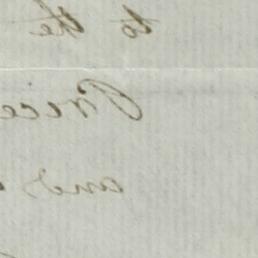 to the
Price
and